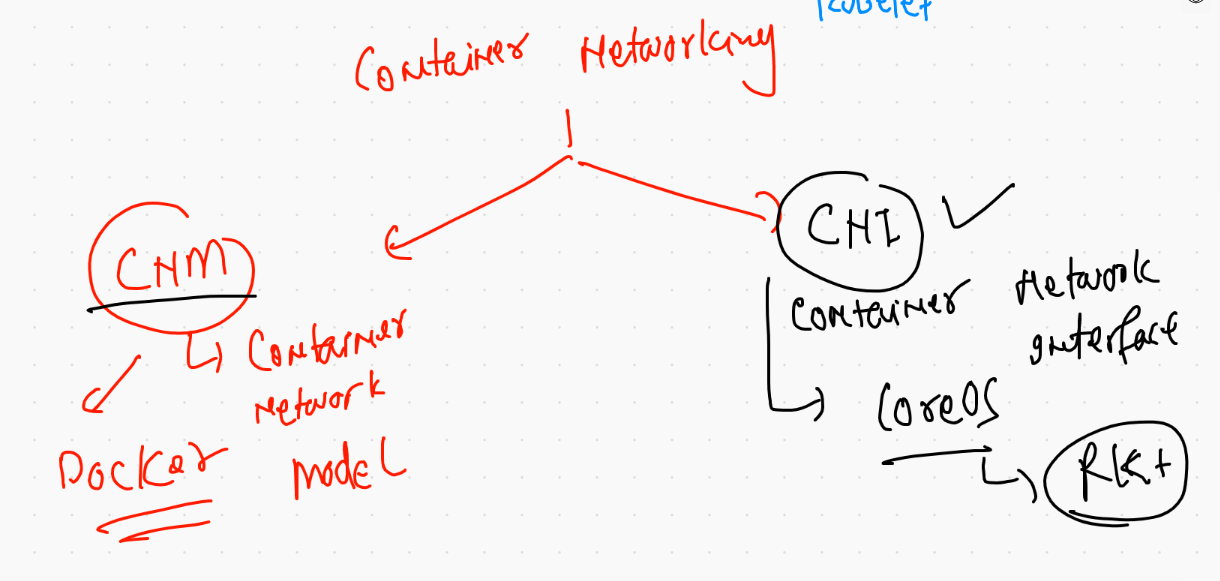 Kubelet
Container Networking
CNM
CNI
Container
Network
Model
Docker
Container Network
Interface
CoreOS
RKt